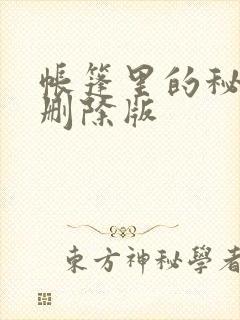 帐篷里的秘
删除版
东方神秘學者